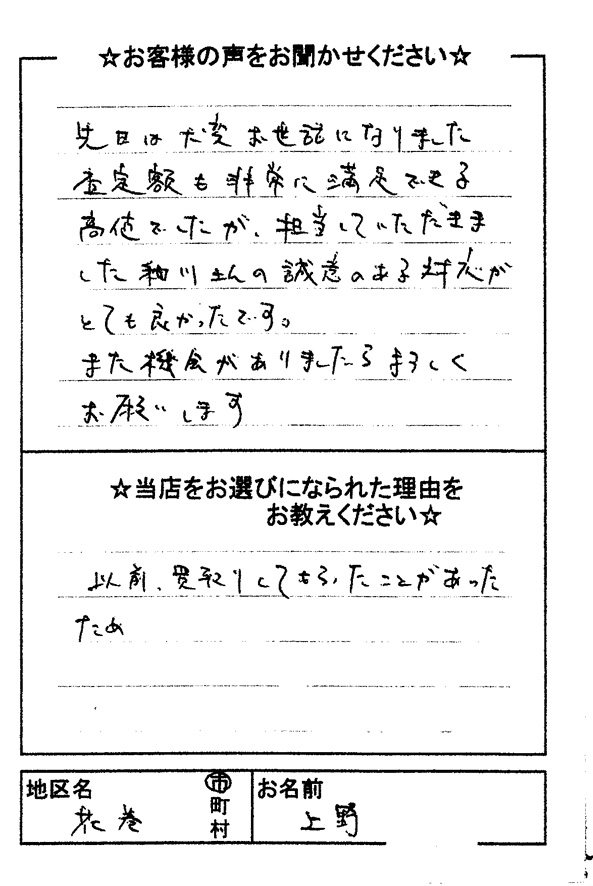 ☆お客様の声をお聞かせください☆
先日は大変お世話になりました
査定額も非常に満足できる
高値でしたが、担当していただきま
した細川さんの誠意のある対応が
とても良かったです。
また機会がありましたらよろしく
お願いします
☆当店をお選びになられた理由を
お教えください☆
以前、買取りしてもらったことがあった
ため
地区名
花巻
市
町
村
お名前
上野